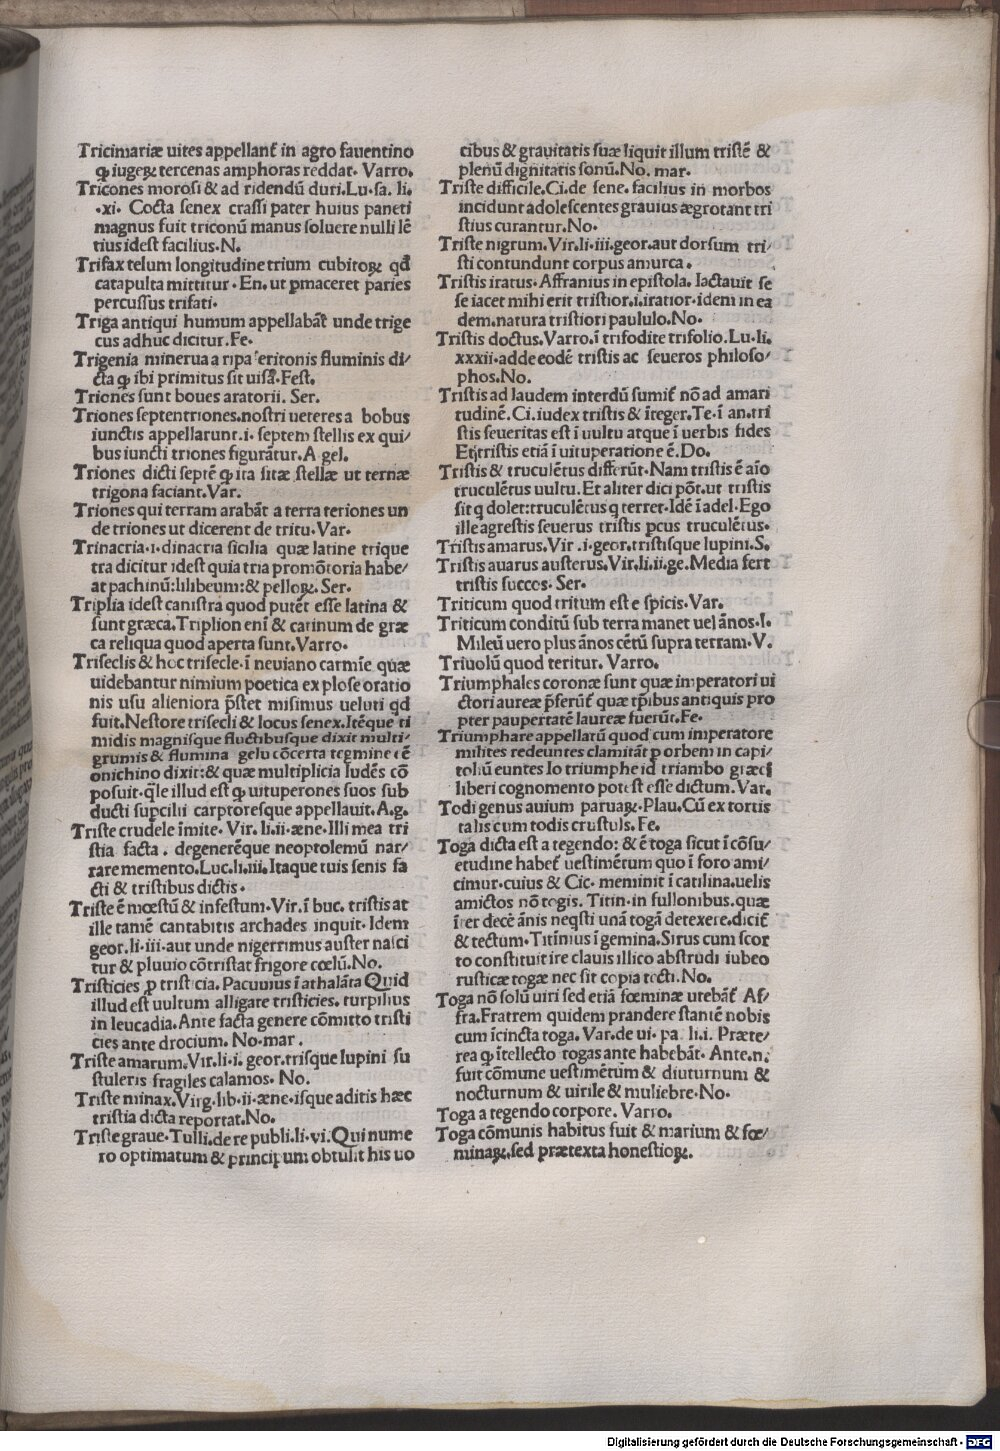 Tricimariæ uites appellant᷑ in agro fauentino
ꝙ iugeꝝ tercenas amphoras reddat. Varro.
Tricones morosi & ad ridendū duri.Lu.sa. li.
.xi. Cocta senex crassi pater huius paneti
magnus fuit triconū manus soluere nulli lē
tius idest facilius.N.
Trifax telum longitudine trium cubitoꝝ qđ
catapulta mittitur. En. ut ꝑmaceret paries
percussus trifati.
Triga antiqui humum appellabāt unde trige
cus adhuc dicitur.Fe.
Trigenia minerua a ripa eritonis fluminis di/
cta ꝙ ibi primitus sit uisa.Fest.
Triones sunt boues aratorii. Ser.
Triones septentriones.nostri ueteres a bobus
iunctis appellarunt.i. septem stellis ex qui/
bus iuncti triones figurātur.A gel.
Triones dicti septē ꝙ ita sitæ stellæ ut ternæ
trigona faciant.Var.
Triones qui terram arabāt a terra teriones un
de triones ut dicerent de tritu.Var.
Trinacria.i.dinacria sicilia quæ latine trique
tra dicitur idest quia tria promōtoria habe/
at pachinū:lilibeum:& pelloꝝ. Ser.
Triplia idest canistra quod putēt esse latina &
sunt græca.Triplion enī & catinum de græ
ca reliqua quod aperta sunt.Varro.
Triseclis & hoc trisecle.ī neuiano carmīe quæ
uidebantur nimium poetica ex plose oratio
nis usu alieniora p̄stet misimus ueluti qđ
fuit.Nestore trisecli & locus senex.Itēque ti
midis magnisque fluctibusque dixit multi/
grumis & flumina gelu cōcerta tegmine eē
onichino dixit:& quæ multiplicia ludēs cō
posuit.q̄le illud est ꝙ uituperones suos sub
ducti sup̄cilii carptoresque appellauit.A.g.
Triste crudele īmite. Vir. li.ii.æne.Illi mea tri
stia facta. degenerēque neoptolemū nar/
rare memento.Luc.li.iii.Itaque tuis senis fa
cti & tristibus dictis.
Triste ē mœstū & infestum.Vir.ī buc. tristis at
ille tamē cantabitis archades inquit.Idem
geor.li.iii.aut unde nigerrimus auster nasci
tur & pluuio cōtristat frigore cœlū.No.
Tristicies ꝓ tristicia. Pacuuius ī athalāta Quid
illud est uultum alligate tristicies. turpilius
in leucadia.Ante facta genere cōmitto tristi
cies ante drocium. No.mar.
Triste amarum.Vir.li.i. geor.trisque lupini su
stuleris fragiles calamos. No.
Triste minax.Virg.lib.ii.æne.isque aditis hæc
tristia dicta reportat.No.
Triste graue.Tulli.de re publi.li.vi.Qui nume
ro optimatum & principum obtulit his uo
cibus & grauitatis suæ liquit illum tristē &
plenū dignitatis sonū.No. mar.
Triste difficile.Ci.de sene. facilius in morbos
incidunt adolescentes grauius ægrotant tri
stius curantur.No.
Triste nigrum.Vir.li.iii.geor.aut dorsum tri/
sti contundunt corpus amurca.
Tristis iratus.Affranius in epistola. Iactauit se
se iacet mihi erit tristior.i.iratior.idem in ea
dem.natura tristiori paululo.No.
Tristis doctus.Varro.ī trifodite trifolio.Lu.li.
xxxii.adde eodē tristis ac seueros philoso/
phos.No.
Tristis ad laudem interdū sumit᷑ nō ad amari
tudinē.Ci.iudex tristis & īteger.Te.ī an.tri
stis seueritas est ī uultu atque ī uerbis fides
Etꝫtristis etiā ī uituperatione ē.Do.
Tristis & truculētus differūt.Nam tristis ē aīo
truculētus uultu.Et aliter dici pōt.ut tristis
sit q dolet:truculētus q terret.Idē ī adel.Ego
ille agrestis seuerus tristis ꝑcus truculētus.
Tristis amarus.Vir .i.geor.tristisque lupini.S.
Tristis auarus austerus.Vir.li.ii.ge.Media fert
tristis succos. Ser.
Triticum quod tritum est e spicis.Var.
Triticum conditū sub terra manet uel ānos.l.
Mileū uero plus ānos cētū supra terram.V.
Triuolū quod teritur. Varro.
Triumphales coronæ sunt quæ imperatori ui
ctori aureæ p̄ferūt᷑ quæ tp̄ibus antiquis pro
pter paupertatē laureæ fuerūt.Fe.
Triumphare appellarū quod cum imperatore
milites redeuntes clamitāt ꝑ orbem in capi/
toliū euntes Io triumphe id triambo græcꝭ
liberi cognomento potest esse dictum.Var.
Todi genus auium paruaꝝ.Plau.Cū ex tortis
talis cum todis crustuls.Fe.
Toga dicta est a tegendo: & ē toga sicut ī cōsu/
etudine habet᷑ uestimētum quo ī foro ami/
cimur.cuius & Cic. meminit ī catilina.uelis
amictos nō togis. Titin.in fullonibus.quæ
īter decē ānis neqsti unā togā detexere.dicit᷑
& tectum.Titīnius ī gemina.Sirus cum scor
to constituit ire clauis illico abstrudi iubeo
rusticæ togæ nec sit copia tecti.No.
Toga nō solū uiri sed etiā fœminæ utebāt᷑ Af/
fra.Fratrem quidem prandere stantē nobis
cum īcincta toga. Var.de ui. pa. li.i. Præte/
rea ꝙ ītellecto togas ante habebāt. Ante.n.
fuit cōmune uestimētum & diuturnum &
nocturnum & uirile & muliebre.No.
Toga a tegendo corpore. Varro.
Toga cōmunis habitus fuit & marium & fœ/
minaꝝ.sed prætexta honestioꝝ.
Digitalisierung gefördert durch die Deutsche Forschungsgemeinschaft - DFG